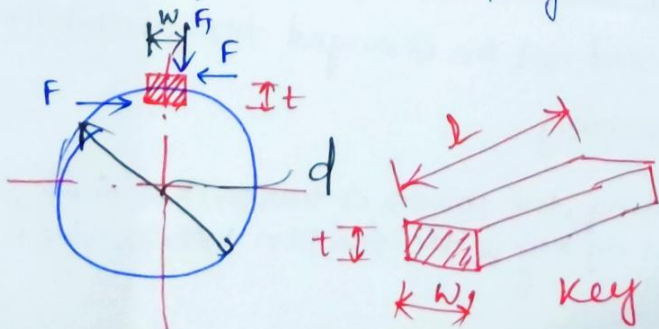 W F₁
F
F t
d
L
t
W
Key